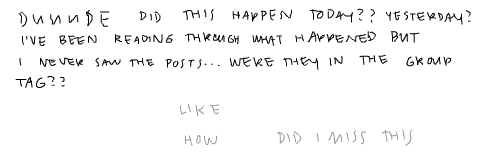 DUUUDE DID THIS HAPPEN TODAY?? YESTERDAY?
I'VE BEEN READING THROUGH WHAT HAPPENED BUT
I NEVER SAW THE POSTS... WERE THEY IN THE GROUP
TAG??
LIKE
HOW DID I MISS THIS